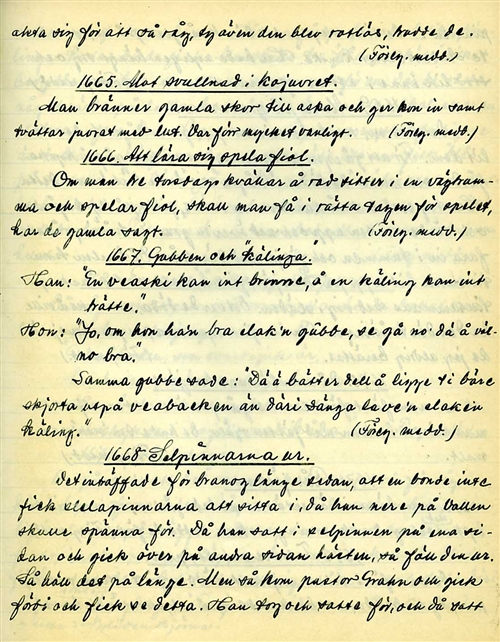 akta sig för att så råg, ty även den blev rotlös, trodde de.
(Föreg. medd.)
1665. Mot svullnad i kojuvret.
Man bränner gamla skor till aska och ger kon in samt
tvättar juvret med lut. Var förr mycket vanligt. (Föreg. medd.)
1666. Att lära sig spela fiol.
Om man tre torsdagskvällar å rad sitter i en vägtrum-
ma och spelar fiol, skall man få i rätta tagen för spelet,
har de gamla sagt. (Föreg. medd.)
1667. Gubben och "kälinga."
Han: "En veaski kan int brinne, å en käling kan int
trätte."
Hon: "Jo, om hon ha'n bra elak'n gubbe, se gå no' då å väl-
no bra."
Samma gubbe sade: "Dä ä bätter dell å ligge ti bäre
skjorta utpå veabacken än däri sänga lave'n elaken
käling." (Föreg. medd.)
1668 Selpinnarna ur.
Det inträffade för bra nog länge sedan, att en bonde inte
fick selapinnarna att sitta i, då han nere på Vallen
skulle spänna för. Då han satt i selpinnen på ena si-
dan och gick över på andra sidan hästen, så föll den ur.
Så höll det på länge. Men så kom pastor Grahn och gick
förbi och fick se detta. Han tog och satte för, och då satt